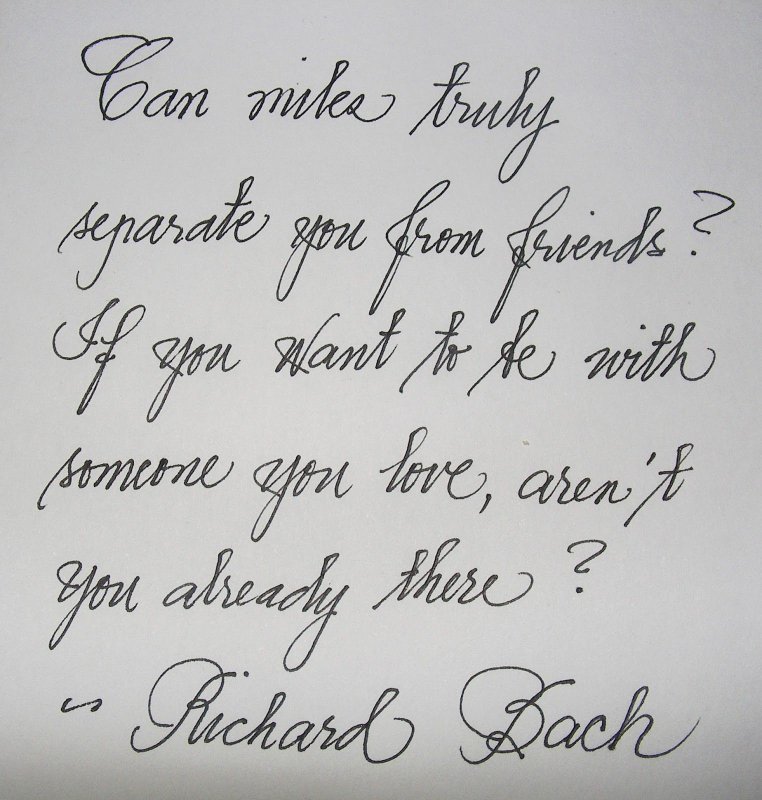 Can miles truly
separate you from friends?
If you want to be with
someone you love, aren't
you already there?
~ Richard Bach